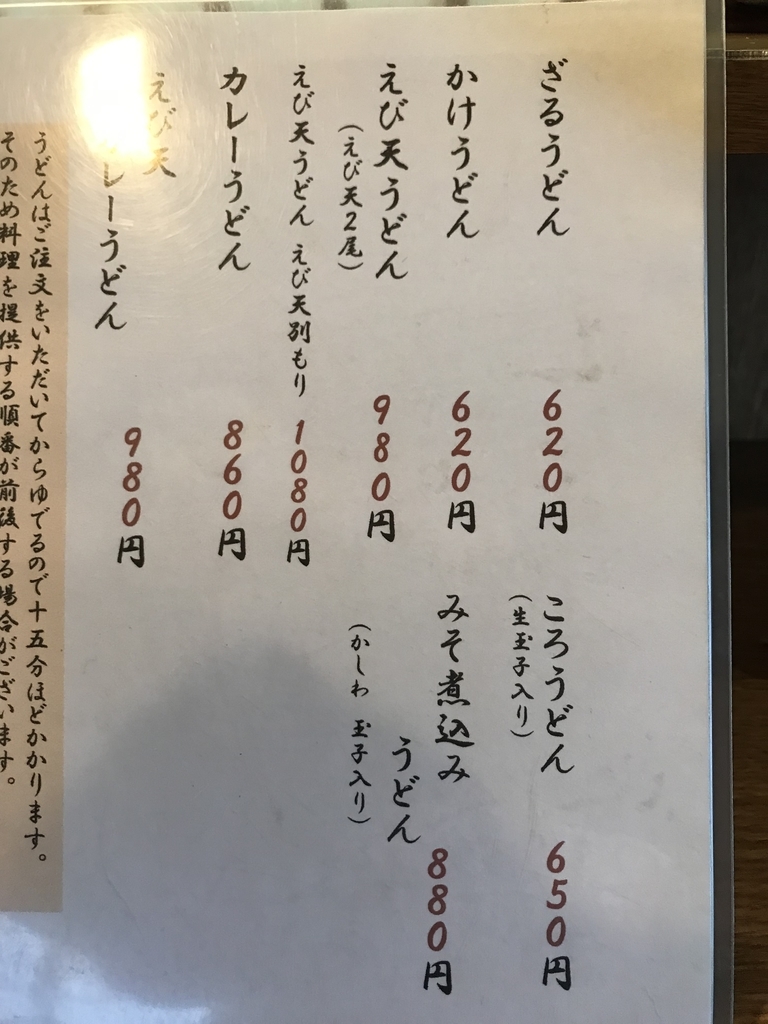 ざるうどん 620円
かけうどん 620円
えび天うどん 980円
(えび天2尾)
えび天うどん えび天別もり 1080円
カレーうどん 860円
えび天
レーうどん 980円
ころうどん 650円
(生玉子入り)
みそ煮込み
うどん 880円
(かしわ 玉子入り)
うどんはご注文をいただいてからゆでるので十五分ほどかかります。
そのため料理を提供する順番が前後する場合がございます。